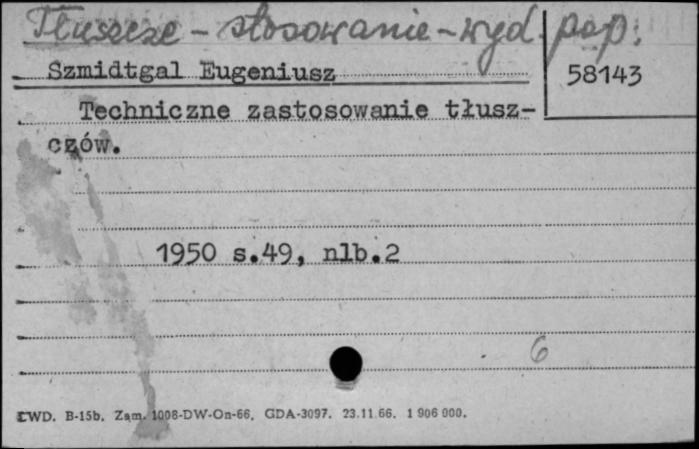 Tłuszcze - stosowanie - wyd. pop.
Szmidtgal Eugeniusz
58143
Techniczne zastosowanie tłusz-
czów.
1950 s.49, nlb.2
6
CWD. B-15b. Zam. 1008-DW-On-66. GDA-3097. 23.11.66. 1 906 000.